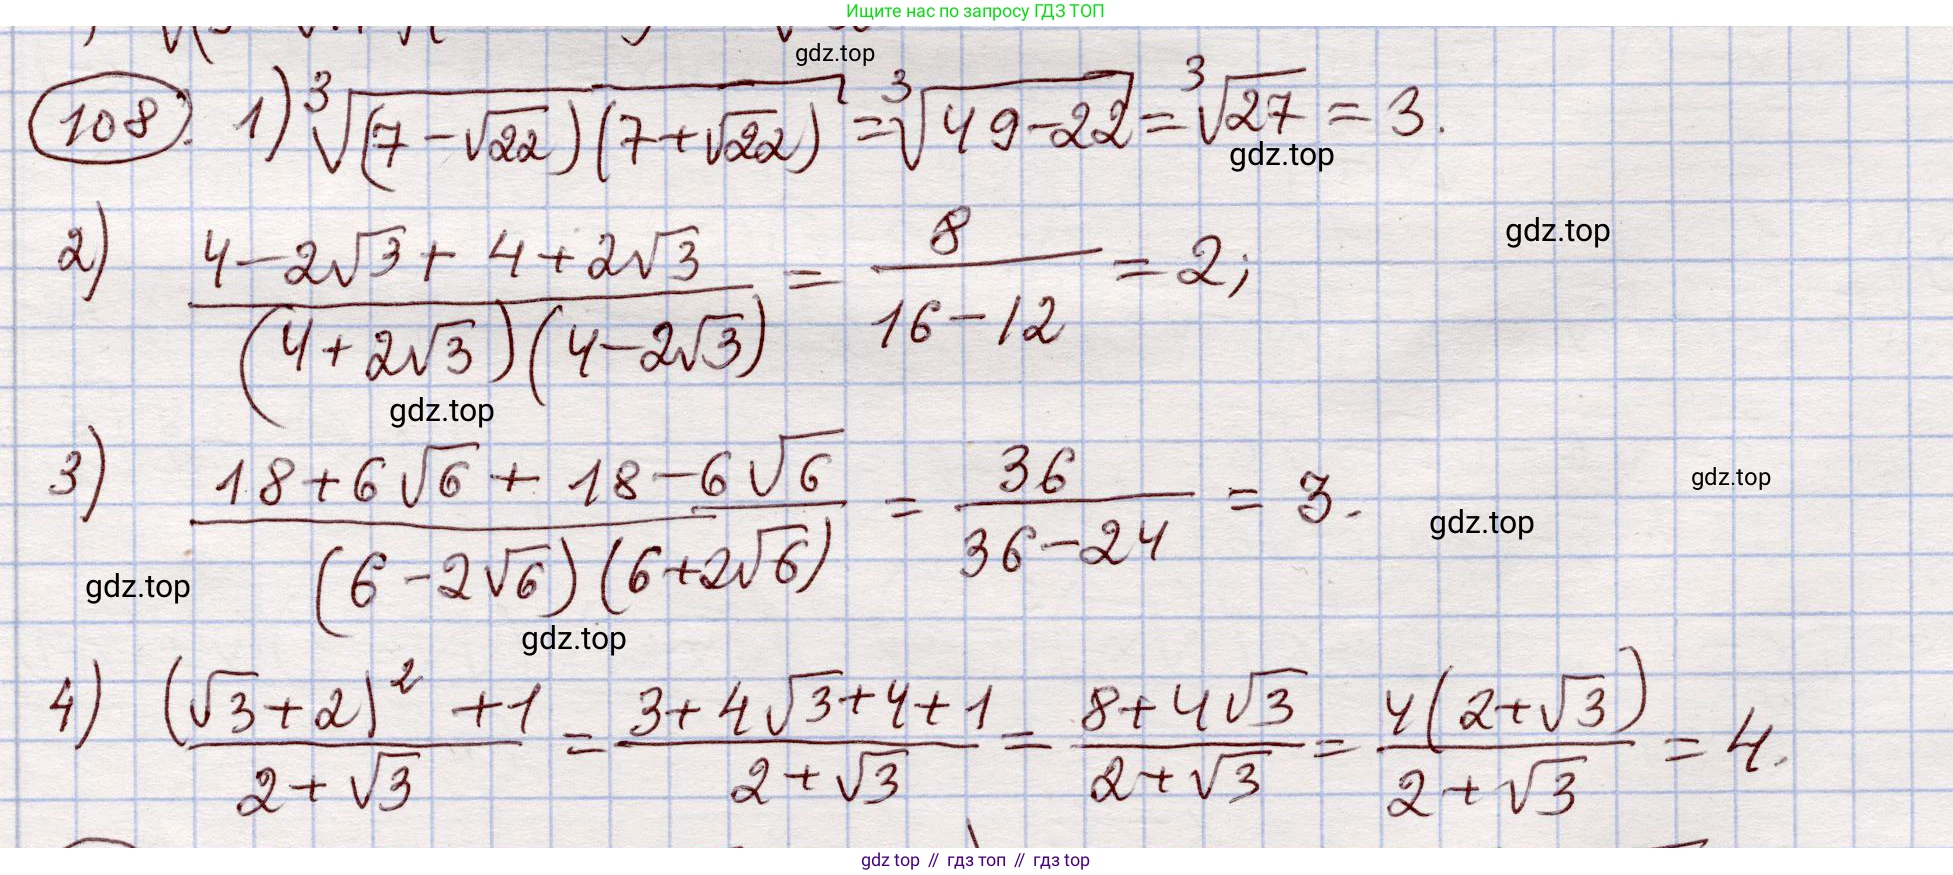 Ищите нас по запросу ГДЗ ТОП
gdz.top
108. 1) ∛((7-√22)(7+√22)) = ∛(49-22) = ∛27 = 3.
gdz.top
gdz.top
2) (4-2√3+4+2√3)/((4+2√3)(4-2√3)) = 8/(16-12) = 2;
gdz.top
3) (18+6√6+18-6√6)/((6-2√6)(6+2√6)) = 36/(36-24) = 3.
gdz.top
gdz.top
gdz.top
gdz.top
4) ((√3+2)²+1)/(2+√3) = (3+4√3+4+1)/(2+√3) = (8+4√3)/(2+√3) = 4(2+√3)/(2+√3) = 4.
gdz top // гдз топ // гдз top